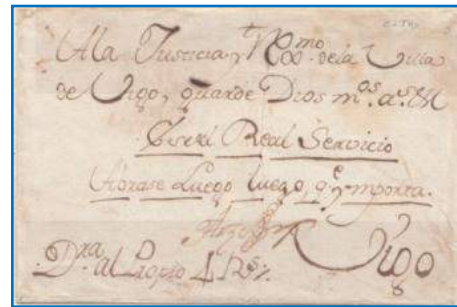 A la Justicia, y Rexmo. de la Villa
de Vigo, guarde Dios ms. as.
Del Real Servicio
Abrase Luego, luego, qe. ymporta.
Vigo
Dra. al Propio 4 Rs.